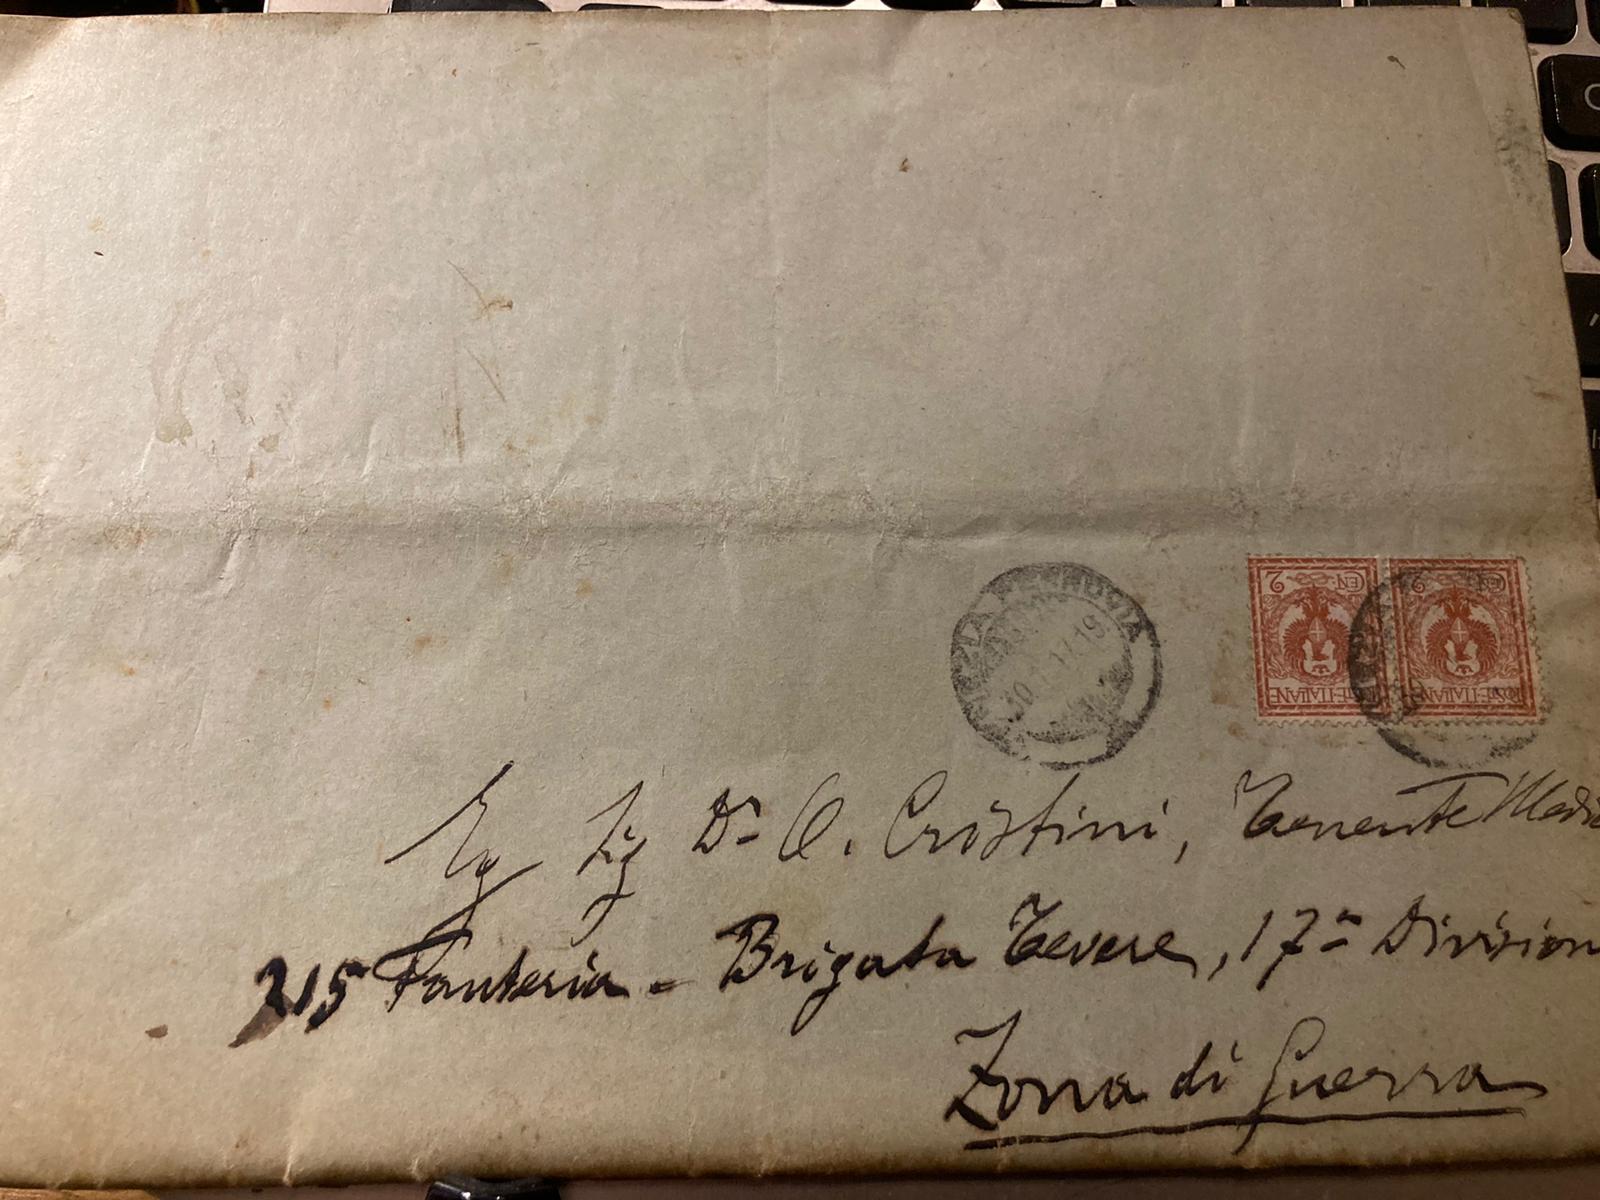 CEN 2
POSTE ITALIANE
CEN 2
POSTE ITALIANE
Eg Sig Dr O. Cristini, Tenente Medic
215 Fanteria - Brigata Tevere, 17a Division
Zona di Guerra